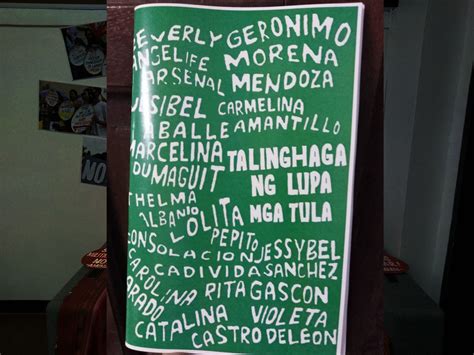 EVERLY GERONIMO
ANGELIFE MORENA
ARSENAL MENDOZA
JESIBEL CARMELINA
ABALLE AMANTILLO
MARCELINA TALINGHAGA
DUMAGUIT NG LUPA
THELMA MGA TULA
LOLITA
PEPITO
CONSOLACION JESSYBEL
CADIVIDA SANCHEZ
CAROLINA RITA GASCON
VIOLETA
CATALINA CASTRO DELEON
NO